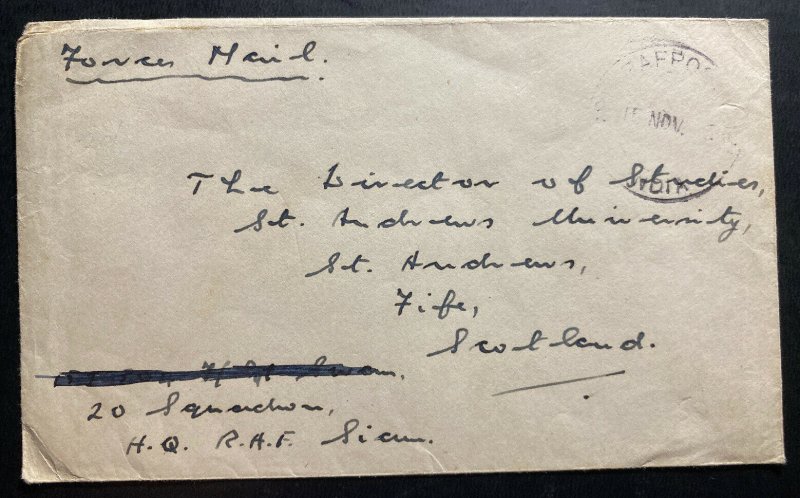 Forces Mail.
RAFPOST
15 NOV.
The Director of Studies,
St. Andrews University,
St. Andrews,
Fife,
Scotland.
20 Squadron,
H.Q. R.A.F. Siam.